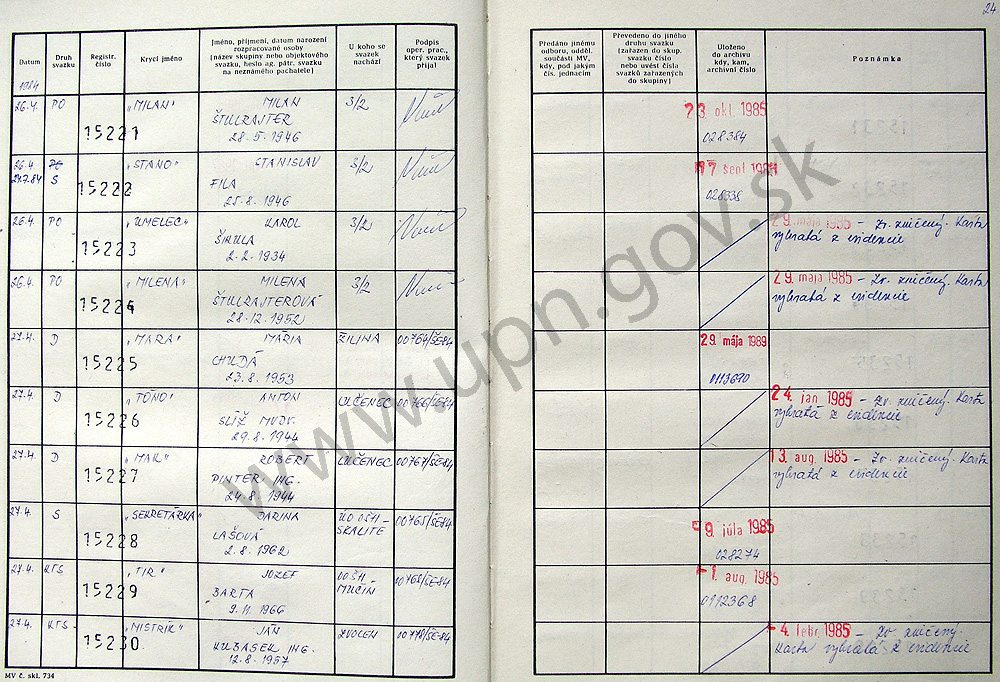 24
Datum
Druh svazku
Registr. číslo
Krycí jméno
Jméno, příjmení, datum narození rozpracované osoby (název skupiny nebo objektového svazku, heslo ag. pátr. svazku na neznámého pachatele)
U koho se svazek nachází
Podpis oper. prac., který svazek přijal
Předáno jinému odboru, odděl. součásti MV, kdy, pod jakým čís. jednacím
Převedeno do jiného druhu svazku (zařazen do skup. svazku číslo nebo uvést čísla svazků zařazených do skupiny)
Uloženo do archivu kdy, kam, archivní číslo
Poznámka
1984
26.4. PO 15221 „MILAN" MILAN 3/2
ŠTULRAJTER
28.5.1946
23. okt. 1985
028384
26.4. PO 15222 „STANO" STANISLAV 3/2
24.7.84 S
FILA
25.8.1946
028338
26.4. PO 15223 „UMELEC" KAROL 3/2
ŠIKULA
2.2.1934
29. mája 1985 – Zv. zničený. Karta
vybratá z evidencie
26.4. PO 15224 „MILENA" MILENA 3/2
ŠTULRAJTEROVÁ
28.12.1952
29. mája 1985 – Zv. zničený. Karta
vybratá z evidencie
27.4. D 15225 „MARA" MÁRIA ŽILINA 00764/ŠE-84
CHUDÁ
23.8.1953
29. mája 1989
0113670
27.4. D 15226 „TÓNO" ANTON LUČENEC 00766/ŠE-84
SLÍŽ MUDr.
29.8.1944
24. jan 1985 – Zv. zničený. Karta
vybratá z evidencie
27.4. D 15227 „MAK" ROBERT LUČENEC 00767/ŠE-84
PINTER ING.
24.8.1944
13. aug. 1985 – Zv. zničený. Karta
vybratá z evidencie
27.4. S 15228 „SEKRETÁRKA" DARINA 00765/ŠE-84
SKALITÉ
LAŠOVÁ
2.8.1962
9. júla 1985
028274
27.4. KTS 15229 „TIR" JOZEF OOŠH 00768/ŠE-84
MUČÍN
BARTA
9.11.1966
1. aug. 1985
0112368
27.4. KTS 15230 „MISTRÍK" JÁN ZVOLEN 00778/ŠE-84
KUBASEK ING.
12.8.1957
4. febr. 1985 – Zv. zničený.
Karta vybratá z evidencie
MV č. skl. 734
www.upn.gov.sk